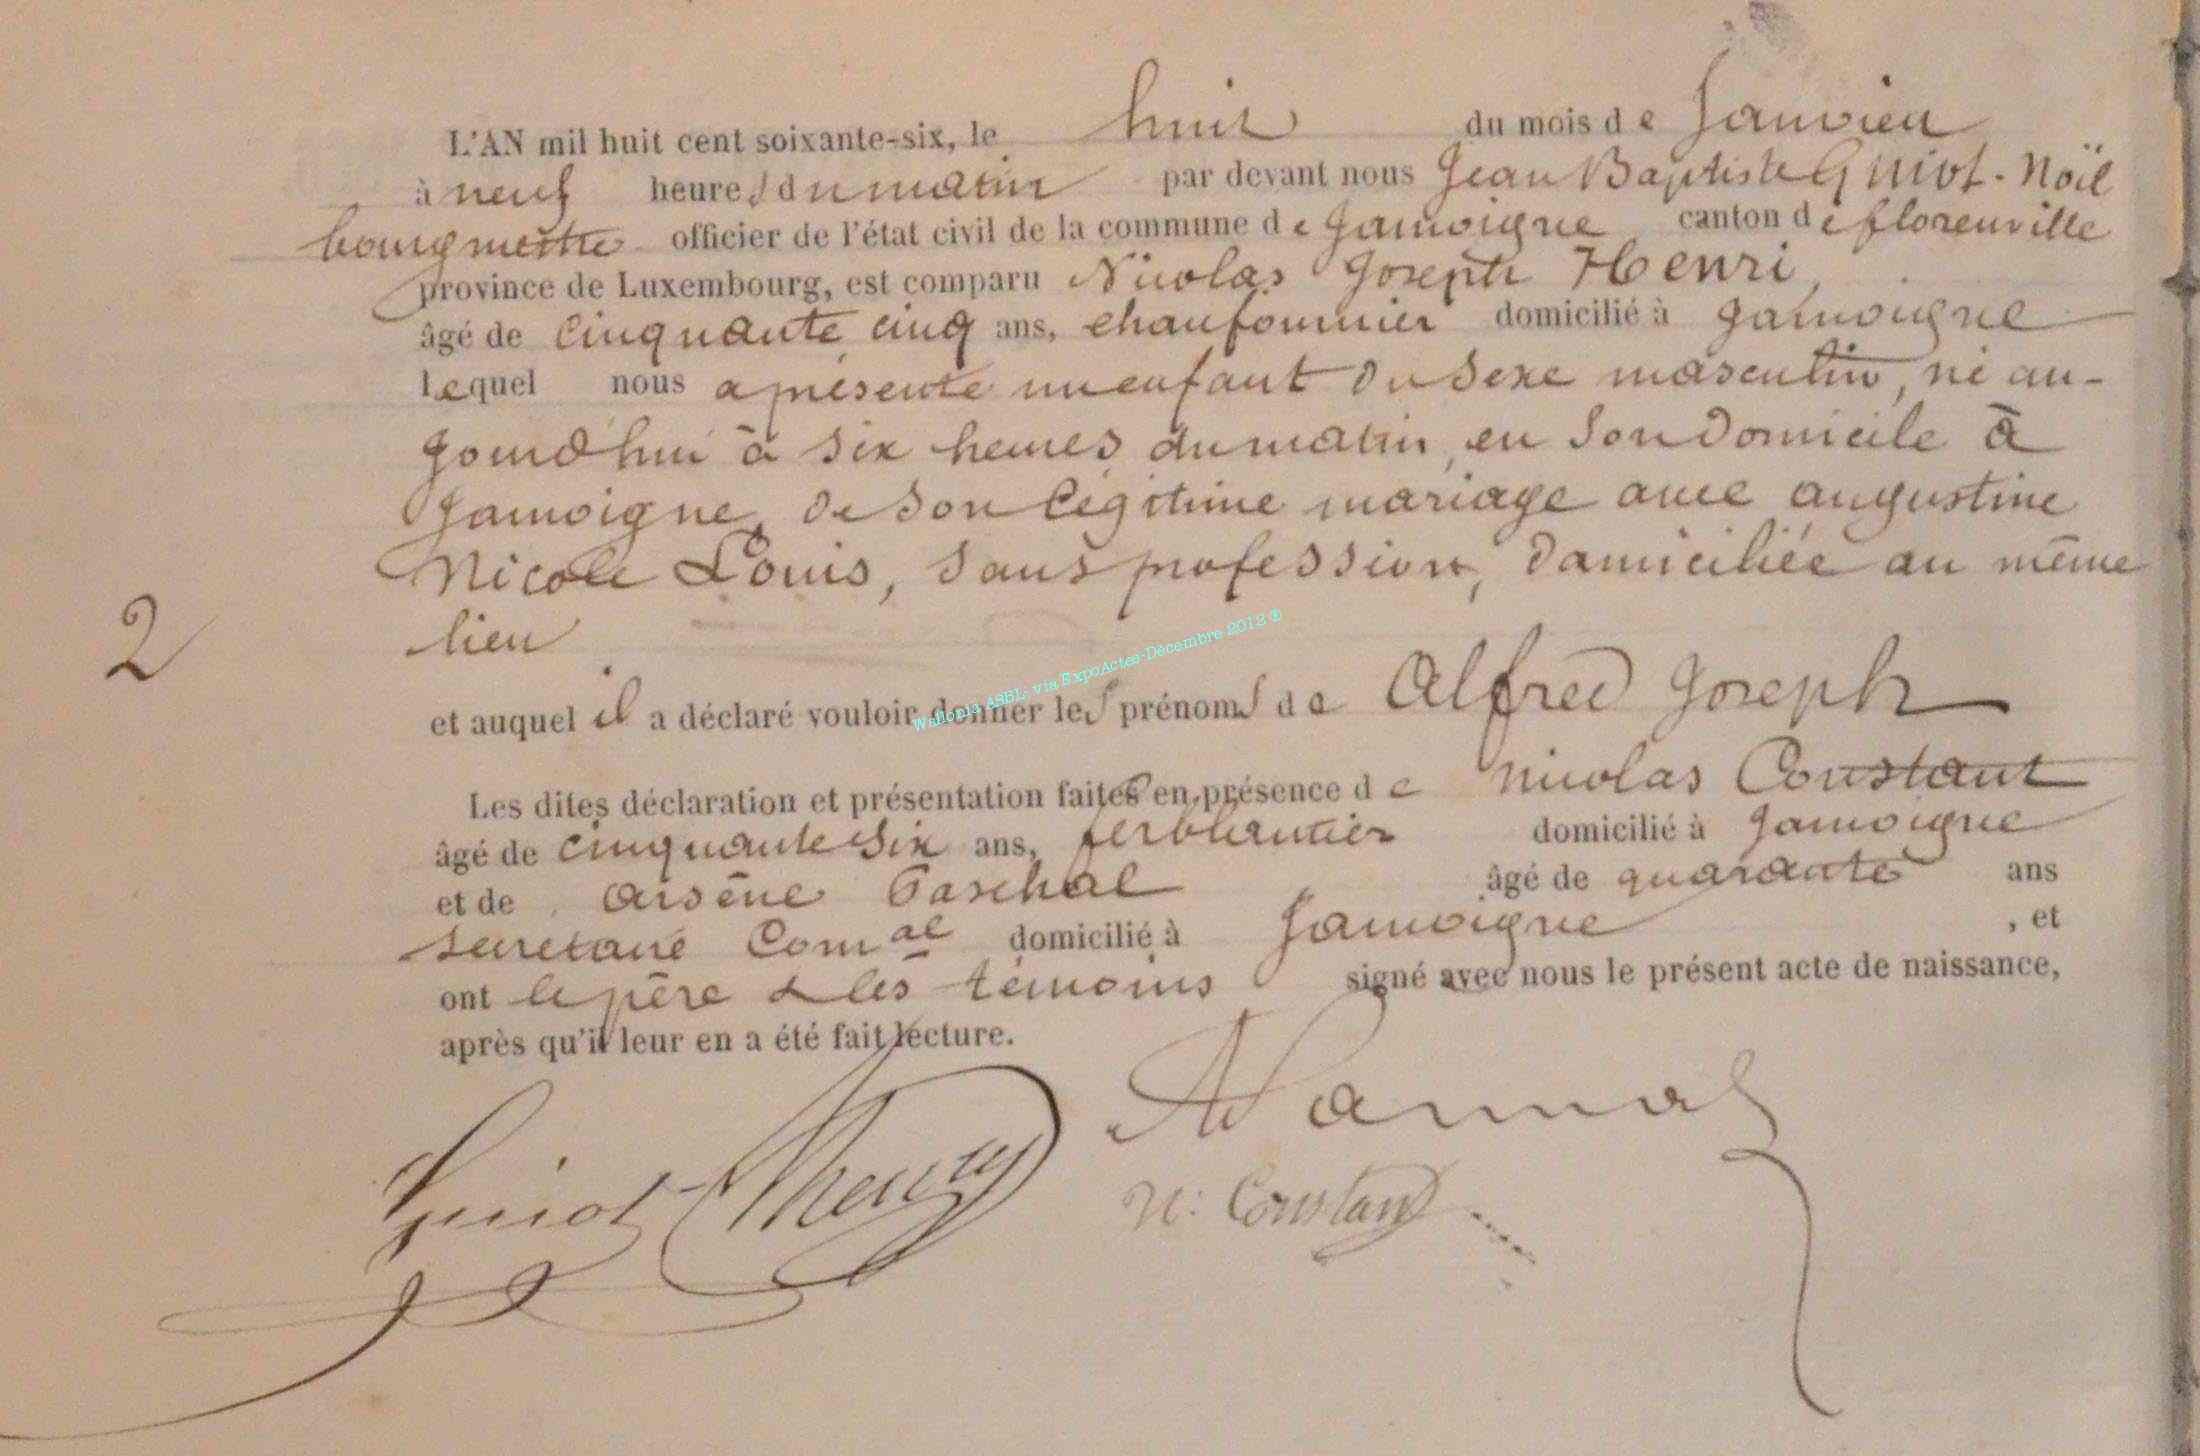 L'AN mil huit cent soixante-six, le huit du mois de Janvier
à neuf heures du matin par devant nous Jean Baptiste Guiot-Noël
bourgmestre officier de l'état civil de la commune de Jamoigne canton de florenville
province de Luxembourg, est comparu Nicolas Joseph Henri,
âgé de cinquante cinq ans, chaufournier domicilié à Jamoigne
lequel nous a présenté un enfant du sexe masculin, né au-
jourd'hui à six heures du matin, en son domicile à
Jamoigne, de son légitime mariage avec augustine
Nicole Louis, sans profession, domiciliée au même
2
lieu
Wallonia ASBL: via ExpoActes-Décembre 2012 ®
et auquel il a déclaré vouloir donner les prénoms de Alfred Joseph
Les dites déclaration et présentation faites en présence de Nicolas Constant
âgé de cinquante six ans, ferblantier domicilié à Jamoigne
et de Arsène Paschal âgé de quarante ans
secretaire Com^al domicilié à Jamoigne, et
ont le père & les témoins signé avec nous le présent acte de naissance,
après qu'il leur en a été fait lecture.
Guiot Henry
N: Constant